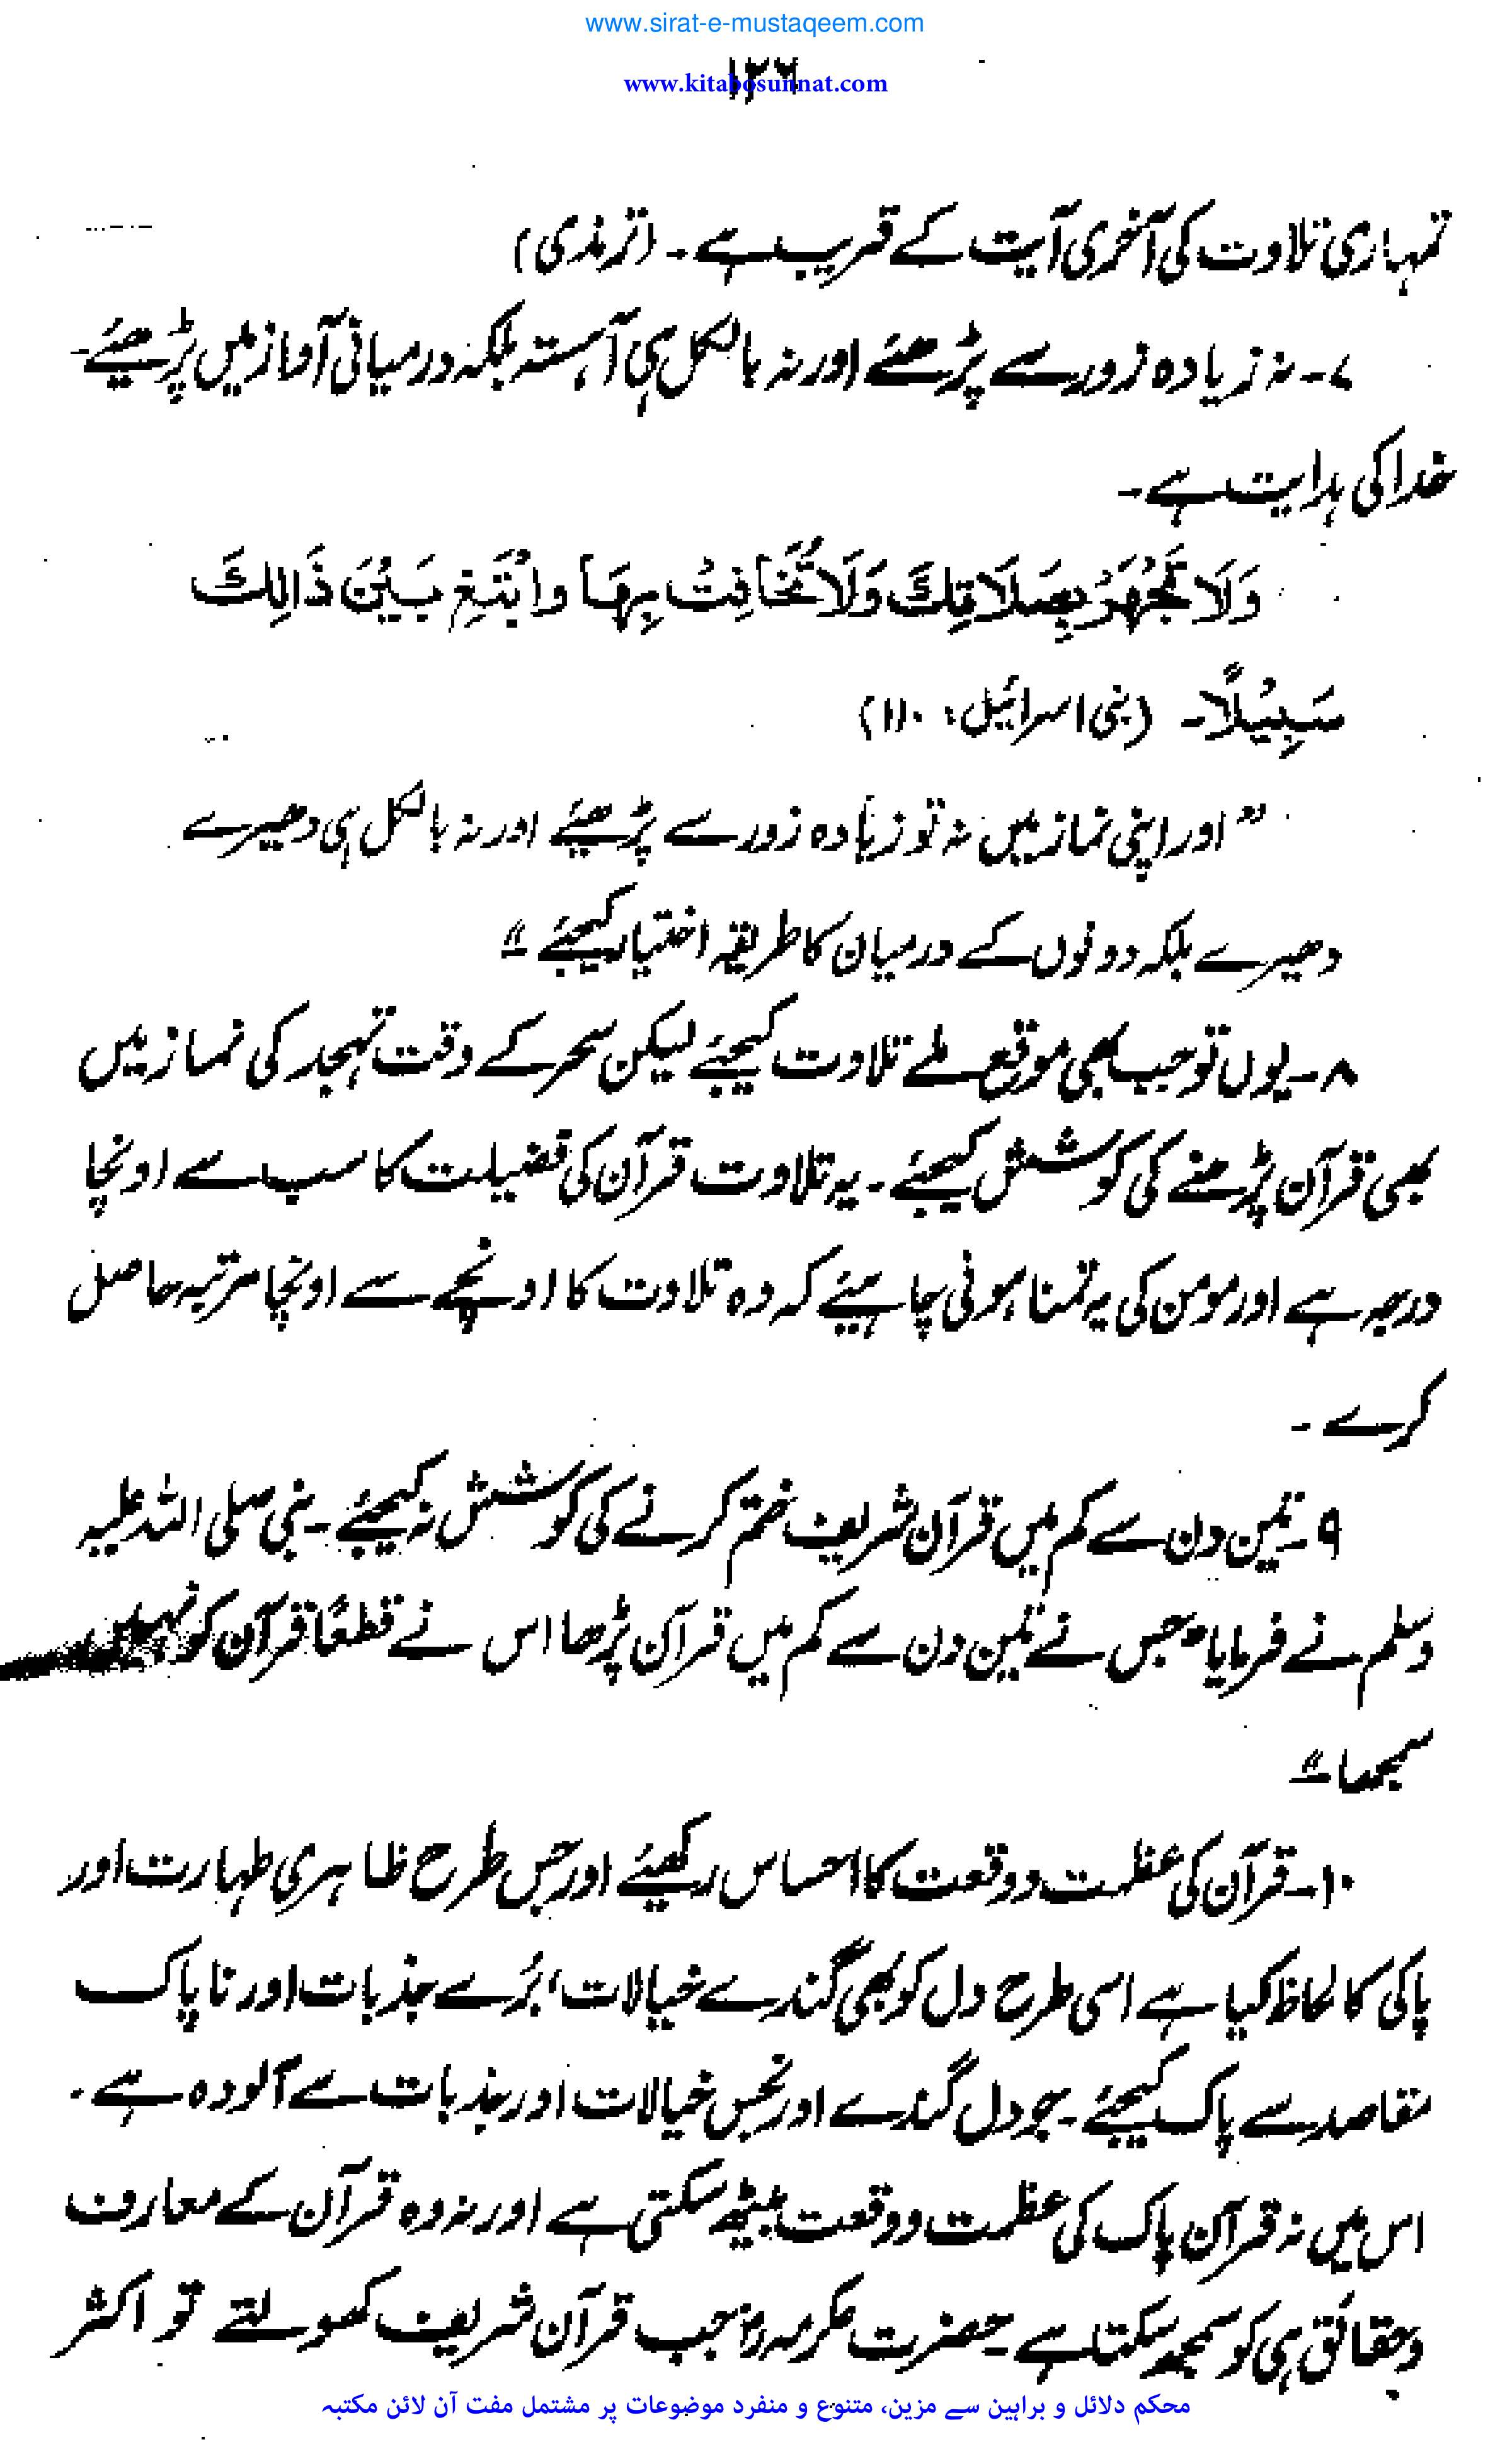 www.sirat-e-mustaqeem.com
۱۲۶
www.kitabosunnat.com
تمہاری تلاوت کی آخری آیت کے قریب ہے۔ (ترمذی)
۷۔ نہ زیادہ زور سے پڑھئے اور نہ بالکل ہی آہستہ بلکہ درمیانی آواز میں پڑھیئے۔
خدا کی ہدایت ہے۔
وَلَا تَجْهَرْ بِصَلَاتِكَ وَلَا تُخَافِتْ بِهَا وابْتَغِ بَيْنَ ذَالِكَ
سَبِيْلًا۔ (بنی اسرائیل: ۱۱۰)
”اور اپنی نماز میں نہ تو زیادہ زور سے پڑھیئے اور نہ بالکل ہی دھیرے
دھیرے بلکہ دونوں کے درمیان کا طریقہ اختیار کیجئے“
۸۔ یوں تو جب بھی موقع ملے تلاوت کیجئے لیکن سحر کے وقت تہجد کی نماز میں
بھی قرآن پڑھنے کی کوشش کیجئے۔ یہ تلاوت قرآن کی فضیلت کا سب سے اونچا
درجہ ہے اور مومن کی یہ تمنا ہونی چاہیئے کہ وہ تلاوت کا اونچے سے اونچا مرتبہ حاصل
کرے۔
۹۔ تین دن سے کم میں قرآن شریف ختم کرنے کی کوشش نہ کیجئے۔ نبی صلی اللہ علیہ
وسلم نے فرمایا ”جس نے تین دن سے کم میں قرآن پڑھا اس نے قطعًا قرآن کو نہیں
سمجھا“
۱۰۔ قرآن کی عظمت و وقعت کا احساس رکھیئے اور جس طرح ظاہری طہارت اور
پاکی کا لحاظ کیا ہے اسی طرح دل کو بھی گندے خیالات، بُرے جذبات اور ناپاک
مقاصد سے پاک کیجئے۔ جو دل گندے اور نجس خیالات اور جذبات سے آلودہ ہے۔
اس میں نہ قرآن پاک کی عظمت و وقعت بیٹھ سکتی ہے اور نہ وہ قرآن کے معارف
و حقائق ہی کو سمجھ سکتا ہے۔ حضرت عکرمہ رضؓ جب قرآن شریف کھولتے تو اکثر
محکم دلائل و براہین سے مزین، متنوع و منفرد موضوعات پر مشتمل مفت آن لائن مکتبہ